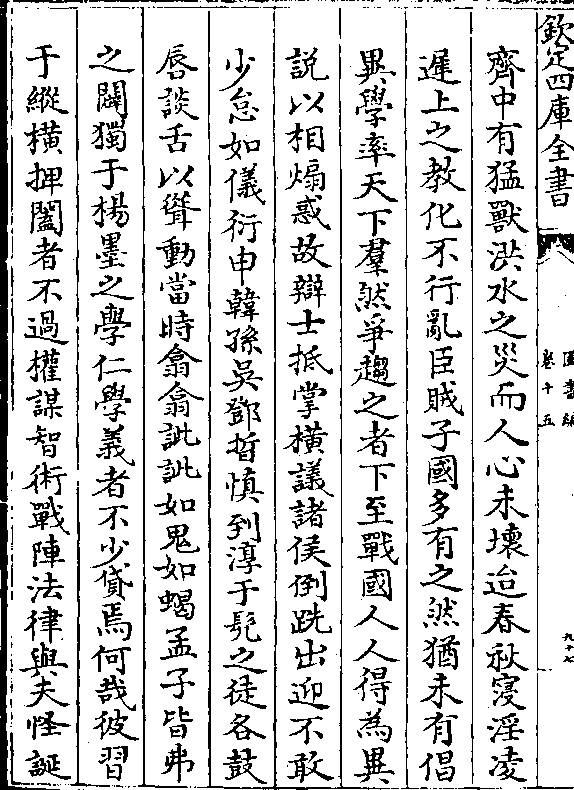 欽定四庫全書
圖書編
卷十五
九十七
齊中有猛獸洪水之災而人心未壞迨春秋寖淫凌
遲上之教化不行亂臣賊子國多有之然猶未有倡
異學率天下羣然爭趨之者下至戰國人人得為異
説以相煽惑故辯士抵掌橫議諸侯倒跣出迎不敢
少怠如儀衍申韓孫吳鄧晳慎到淳于髠之徒各鼓
唇談舌以聳動當時翕翕訿訿如鬼如蝎孟子皆弗
之闢獨于楊墨之學仁學義者不少貸焉何哉彼習
于縱橫捭闔者不過權謀智術戰陣法律與夫怪誕